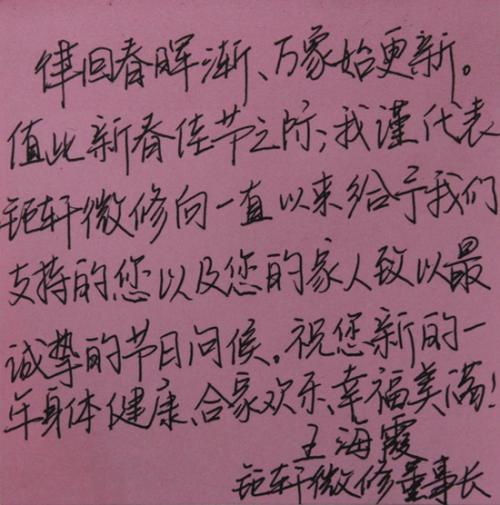 律回春晖渐、万象始更新。
值此新春佳节之际;我谨代表
钜轩微修向一直以来给予我们
支持的您以及您的家人致以最
诚挚的节日问候。祝您新的一
年身体健康、合家欢乐、幸福美满!
王海霞
钜轩微修董事长